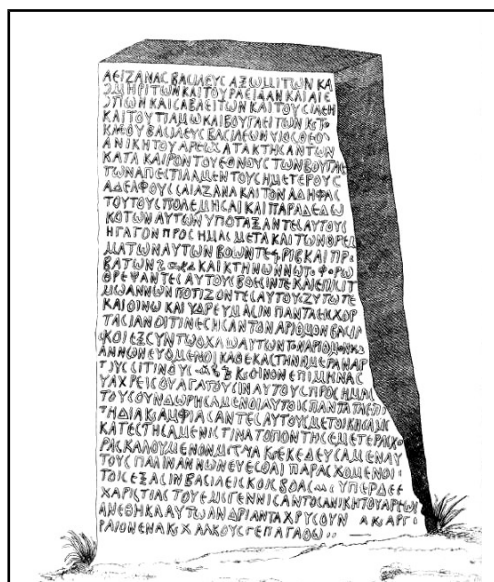 ΑΕΙΖΑΝΑCΒΑCΙΛΕΥCΑΞΩΜΙΤΩΝΚΑ
ΟΜΗΡΙΤΩΝΚΑΙΤΟΥΡΑΕΙΔΑΝΚΑΙΑΙΘ
ΙΟΠΩΝΚΑΙCΑΒΑΕΙΤΩΝΚΑΙΤΟΥCΙΛΕΗ
ΚΑΙΤΟΥΤΙΑΜΩΚΑΙΒΟΥΓΑΕΙΤΩΝΚΤΟ
ΚΑCΟΥΒΑCΙΛΕΥCΒΑCΙΛΕΩΝΥΙΟCΘΕΟ
ΑΝΙΚΗΤΟΥΑΡΕΩCΑΤΑΚΤΗCΑΝΤΩΝ
ΚΑΤΑΚΑΙΡΟΝΤΟΥΕΘΝΟΥCΤΩΝΒΟΥΓΑΕ
ΤΩΝΑΠΕCΤΙΛΑΜΕΝΤΟΥCΗΜΕΤΕΡΟΥC
ΑΔΕΛΦΟΥCCΑΙΑΖΑΝΑΚΑΙΤΟΝΑΔΗΦΑC
ΤΟΥΤΟΥCΠΟΛΕΜΗCΑΙΚΑΙΠΑΡΑΔΕΔΩ
ΚΟΤΩΝΑΥΤΩΝΥΠΟΤΑΞΑΝΤΕCΑΥΤΟΥC
ΗΓΑΓΟΝΠΡΟCΗΜΑCΜΕΤΑΚΑΙΤΩΝΘΡΕΜ
ΜΑΤΩΝΑΥΤΩΝΒΟΩΝΤΕ ΡΙΒΚΑΙΠΡ
ΒΑΤΩΝ ΚΑΙΚΤΗΝΩΝΝΩΤΟΦΟΡΩ
ΘΡΕΨΑΝΤΕCΑΥΤΟΥCΒΟΕCΙΝΤΕΚΑΙΕΠΙCΙΤΙ
CΜΩΑΝΝΩΝΠΟΤΙΖΟΝΤΕCΑΥΤΟΥCΖΥΤΩΤΕ
ΚΑΙΟΙΝΩΚΑΙΥΔΡΕΥΜΑCΙΝΠΑΝΤΑΕΙCΧΟΡ
ΤΑCΙΑΝΟΙΤΙΝΕCΗCΑΝΤΟΝΑΡΙΘΜΟΝΒΑCΙΛΙ
CΚΟΙΕΞCΥΝΤΩΟΧΛΩΑΥΤΩΝΤΟΝΑΡΙΘΜΟΝ
ΑΝΝΩΝΕΥΟΜΕΝΟΙΚΑΘΕΚΑCΤΗΝΗΜΕΡΑΝΑΡ
ΤΟΥCCΙΤΙΝΟΥC ΚΟΙΝΟΝΕΠΙΜΗΝΑC
ΑΧΡΕΙCΟΥΑΓΑΓΟΥCΙΝΑΥΤΟΥCΠΡΟCΗΜΑC
ΤΟΥCΟΥΝΔΩΡΗCΑΜΕΝΟΙΑΥΤΟΙCΠΑΝΤΑΤΑΕΠΙ
ΤΗΔΙΑΚΑΜΦΙΑCΑΝΤΕCΑΥΤΟΥCΜΕΤΟΙΚΗCΑΝΤΕC
ΚΑΤΕCΤΗCΑΜΕΝΙCΤΙΝΑΤΟΠΟΝΤΗCΗΜΕΤΕΡΑCΧΩ
ΡΑCΚΑΛΟΥΜΕΝΟΝΜΑΤΛΙΑΚΕΚΕΛΕΥCΑΜΕΝΑΥ
ΤΟΥCΠΑΛΙΝΑΝΝΩΝΕΥΕCΘΑΙΠΑΡΑCΧΟΜΕΝΟΙ
ΤΟΙCΕΞΑCΙΝΒΑCΙΛΕΙCΚΟΙCΒΟΑC ΥΠΕΡΔΕΕ
ΧΑΡΙCΤΙΑCΤΟΥΕΜΕΓΕΝΝΗCΑΝΤΟCΑΝΙΚΗΤΟΥΑΡΕΩC
ΑΝΕΘΗΚΑΑΥΤΩΑΝΔΡΙΑΝΤΑΧΡΥCΟΥΝ ΑΚΑΡΓΙ
ΡΑΙΟΝΕΝΑΚΧΑΛΚΟΥCΓΕΠΑΓΑΘΩ